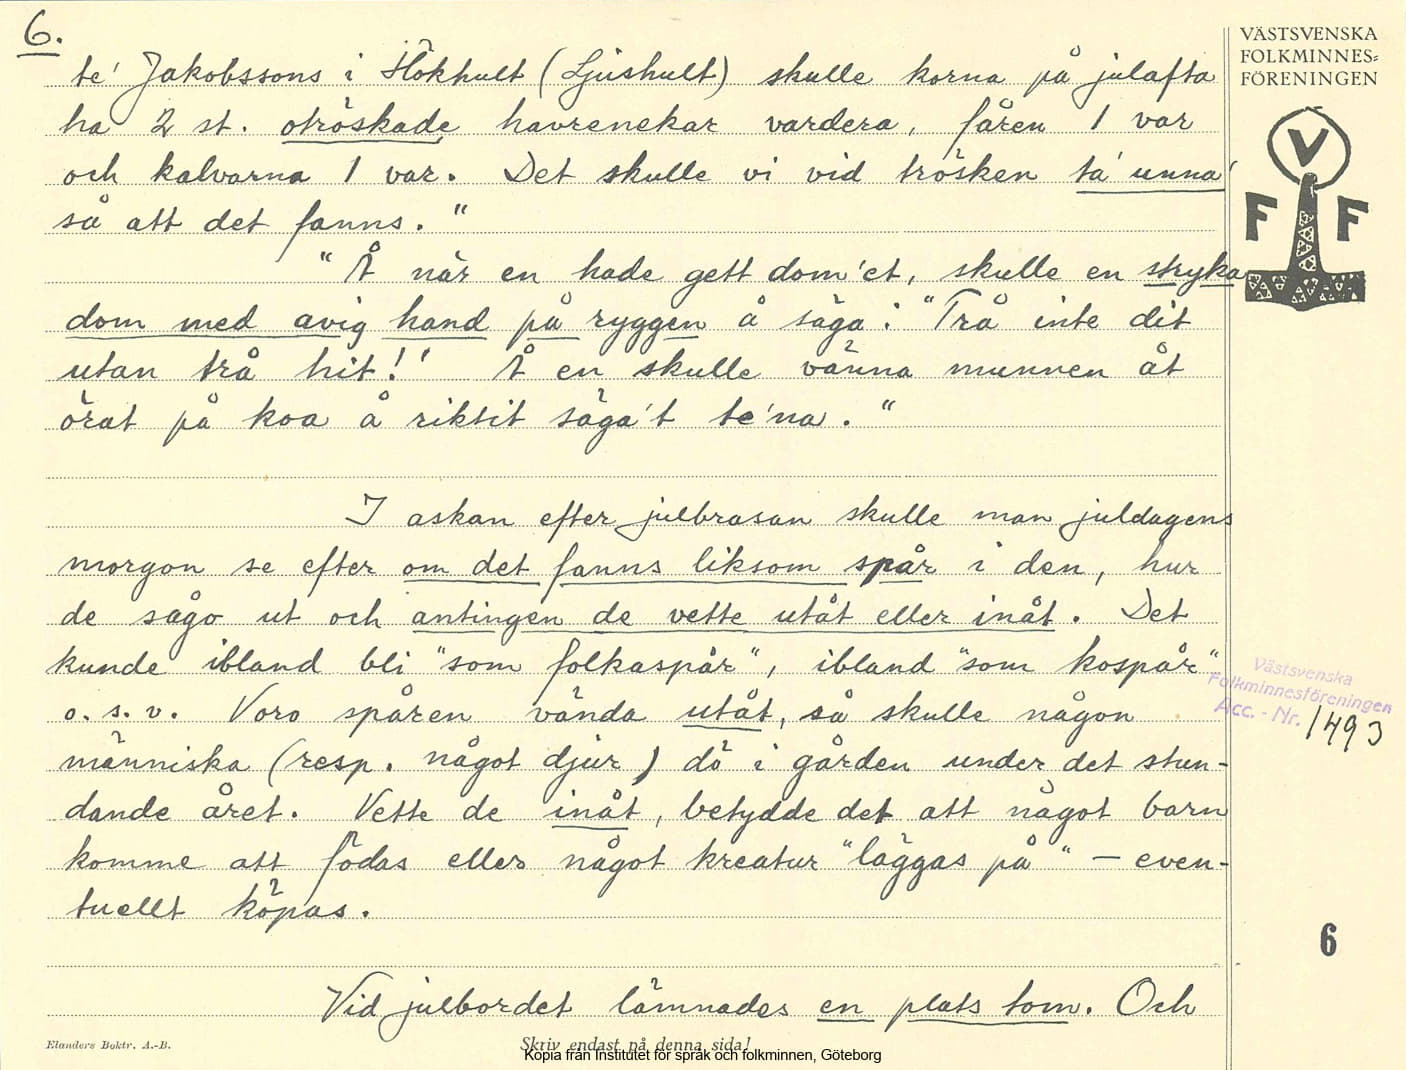 6.
te' Jakobssons i Hökhult (Ljushult) skulle korna på julafta
ha 2 st. otröskade havrenekar vardera, fåren 1 var
och kalvarna 1 var. Det skulle vi vid trösken ta' unna'
så att det fanns."
"Å när en hade gett dom'et, skulle en stryka
dom med avig hand på ryggen å säga: "Trå inte dit
utan trå hit!' Å en skulle vänna munnen åt
örat på koa å riktit säga't te'na."
I askan efter julbrasan skulle man juldagens
morgon se efter om det fanns liksom spår i den, hur
de sågo ut och antingen de vette utåt eller inåt. Det
kunde ibland bli "som folkaspår", ibland "som kospår"
o. s. v. Voro spåren vända utåt, så skulle någon
människa (resp. något djur) dö i gården under det stun-
dande året. Vette de inåt, betydde det att något barn
komme att födas eller något kreatur "läggas på" - even-
tuellt köpas.
Vid julbordet lämnades en plats tom. Och
VÄSTSVENSKA
FOLKMINNES=
FÖRENINGEN
V
F F
Västsvenska
Folkminnesföreningen
Acc. - Nr. 1493
6
Elanders Boktr. A.-B.
Skriv endast på denna sida!
Kopia från Institutet för språk och folkminnen, Göteborg